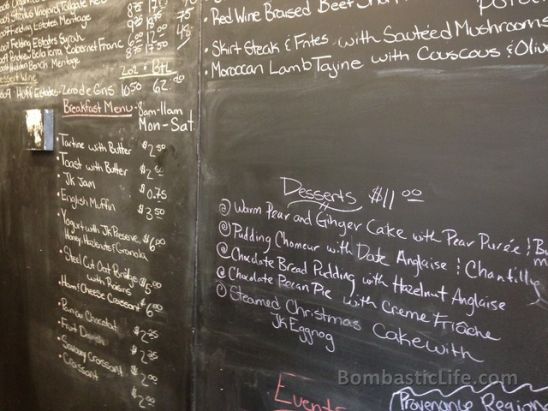 Estate Meritage
Finding Estate Syrah
Cabernet Franc
Meritage
2oz · Btl
Huff Estates - Zero de Gris 10.50 62.00
Breakfast Menu 8am-11am
Mon-Sat
• Tartine with Butter $2.50
• Toast with Butter $2.00
• Jk Jam $0.75
• English Muffin $3.50
Yogurt with JK Preserve, $6.00
Honey, Hazelnuts & Granola
• Steel Cut Oat Porridge $5.00
with Raisins
Ham & Cheese Croissant $6.00
• Pain au Chocolat $2.75
• Fruit Danish $2.75
• Savory Croissant
• Croissant $2.00
• Red Wine Braised Beef
• Skirt Steak & Frites with Sautéed Mushrooms
• Moroccan Lamb Tajine with Couscous & Oliv
Desserts $11.00
Warm Pear and Ginger Cake with Pear Purée &
Pudding Chomeur with Date Anglaise & Chantilly
Chocolate Bread Pudding with Hazelnut Anglaise
Chocolate Pecan Pie with Creme Friache
Steamed Christmas Cake with
JK Eggnog
Events
Provenance Region
BombasticLife.com